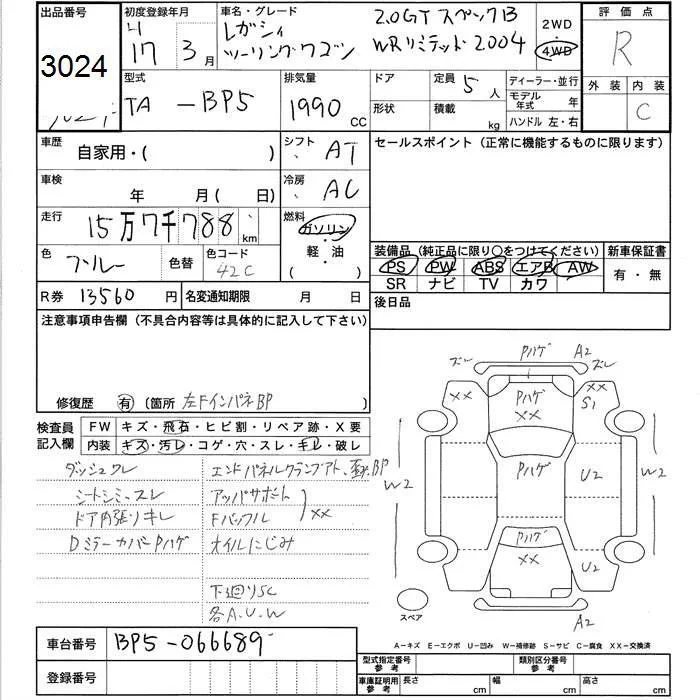 出品番号 初度登録年月 車名・グレード 2WD 評価点
3024 17 3月 レガシィ 2.0GT スペックB ・ 4WD R
ツーリングワゴン WRリミテッド2004
型式 排気量 ドア 定員 5人 ディーラー・並行 外装 内装
TA-BP5 1990 CC 形状 積載 kg モデル年式 年 C
ハンドル 左・右
車歴 自家用・( ) シフト AT セールスポイント(正常に機能するものに限ります)
車検 年 月( 日) 冷房 AC
走行 15万7千788km 燃料 ガソリン・軽・油 ( )
色 ブルー 色替 色コード 42C
装備品(純正品に限り○をつけてください) 新車保証書
PS PW ABS エアB AW 有・無
SR ナビ TV カワ
R券 13560円 名変通知期限 月 日 後日品
注意事項申告欄(不具合内容等は具体的に記入して下さい)
修復歴 有 (箇所 左FインパネBP )
検査員記入欄 FW キズ・飛石・ヒビ割・リペア跡・X要
内装 キズ・汚レ・コゲ・穴・スレ・キレ・破レ
ダッシュクレ
シートシミ、スレ アッパサポート
ドア内張リキレ Fバッフル XX
DミラーカバーPハゲ オイルにじみ
下廻りSC
各A.U.W
ズレ Pハゲ A2 ズレ
XX S1
Pハゲ XX
Pハゲ U2
W2 W2
Pハゲ XX U2
スペア A2
A-キズ E-エクボ U-凹み W-補修跡 S-サビ C-腐食 XX-交換済
車台番号 BP5-066689
登録番号
型式指定番号 参考 類別区分番号 参考
車庫証明用 参考 長さ cm 幅 cm 高さ cm